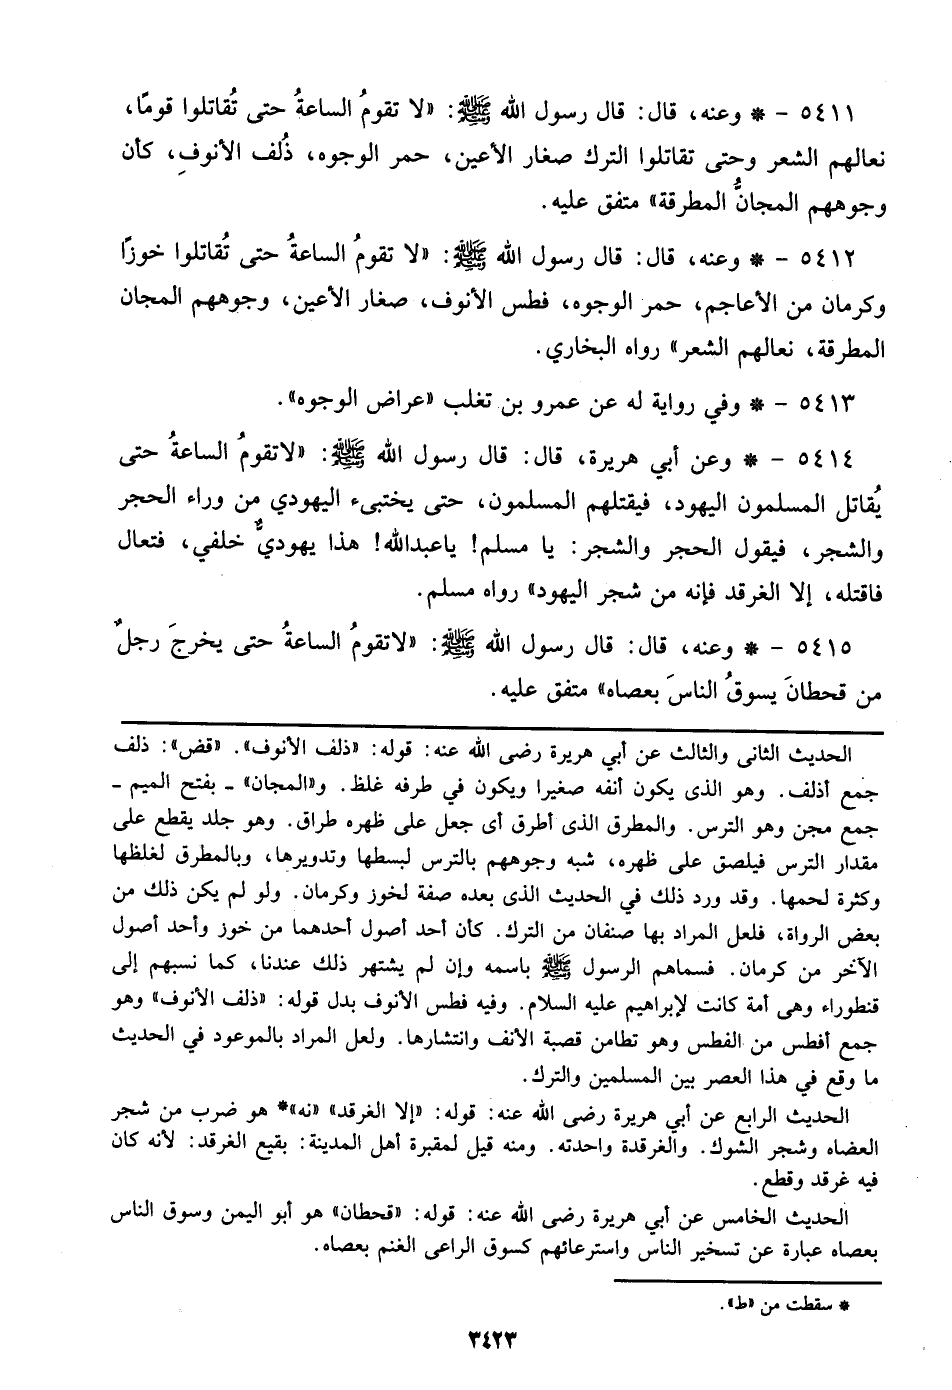 ٥٤١١ – * وعنه، قال: قال رسول الله ﷺ: «لا تقومُ الساعةُ حتى تُقاتلوا قومًا،
نعالهم الشعر وحتى تقاتلوا الترك صغار الأعين، حمر الوجوه، ذُلف الأنوفِ، كأن
وجوههم المجانُّ المطرقة» متفق عليه.
٥٤١٢ – * وعنه، قال: قال رسول الله ﷺ: «لا تقومُ الساعةُ حتى تُقاتلوا خوزًا
وكرمان من الأعاجم، حمر الوجوه، فطس الأنوف، صغار الأعين، وجوههم المجان
المطرقة، نعالهم الشعر» رواه البخاري.
٥٤١٣ – * وفي رواية له عن عمرو بن تغلب «عراض الوجوه».
٥٤١٤ – * وعن أبي هريرة، قال: قال رسول الله ﷺ: «لاتقومُ الساعةُ حتى
يُقاتل المسلمون اليهود، فيقتلهم المسلمون، حتى يختبىء اليهودي من وراء الحجر
والشجر، فيقول الحجر والشجر: يا مسلم! ياعبدالله! هذا يهوديٌّ خلفي، فتعال
فاقتله، إلا الغرقد فإنه من شجر اليهود» رواه مسلم.
٥٤١٥ – * وعنه، قال: قال رسول الله ﷺ: «لاتقومُ الساعةُ حتى يخرجَ رجلٌ
من قحطانَ يسوقُ الناسَ بعصاه» متفق عليه.
الحديث الثانى والثالث عن أبي هريرة رضى الله عنه: قوله: «ذلف الأنوف». «قض»: ذلف
جمع أذلف. وهو الذى يكون أنفه صغيرا ويكون في طرفه غلظ. و«المجان» ـ بفتح الميم ـ
جمع مجن وهو الترس. والمطرق الذى أطرق أى جعل على ظهره طراق. وهو جلد يقطع على
مقدار الترس فيلصق على ظهره، شبه وجوههم بالترس لبسطها وتدويرها، وبالمطرق لغلظها
وكثرة لحمها. وقد ورد ذلك في الحديث الذى بعده صفة لخوز وكرمان. ولو لم يكن ذلك من
بعض الرواة، فلعل المراد بها صنفان من الترك. كأن أحد أصول أحدهما من خوز وأحد أصول
الآخر من كرمان. فسماهم الرسول ﷺ باسمه وإن لم يشتهر ذلك عندنا، كما نسبهم إلى
قنطوراء وهى أمة كانت لإبراهيم عليه السلام. وفيه فطس الأنوف بدل قوله: «ذلف الأنوف» وهو
جمع أفطس من الفطس وهو تطامن قصبة الأنف وانتشارها. ولعل المراد بالموعود في الحديث
ما وقع في هذا العصر بين المسلمين والترك.
الحديث الرابع عن أبي هريرة رضى الله عنه: قوله: «إلا الغرقد» «نه»* هو ضرب من شجر
العضاه وشجر الشوك. والغرقدة واحدته. ومنه قيل لمقبرة أهل المدينة: بقيع الغرقد: لأنه كان
فيه غرقد وقطع.
الحديث الخامس عن أبي هريرة رضى الله عنه: قوله: «قحطان» هو أبو اليمن وسوق الناس
بعصاه عبارة عن تسخير الناس واسترعائهم كسوق الراعى الغنم بعصاه.
* سقطت من «ط».
٣٤٢٣